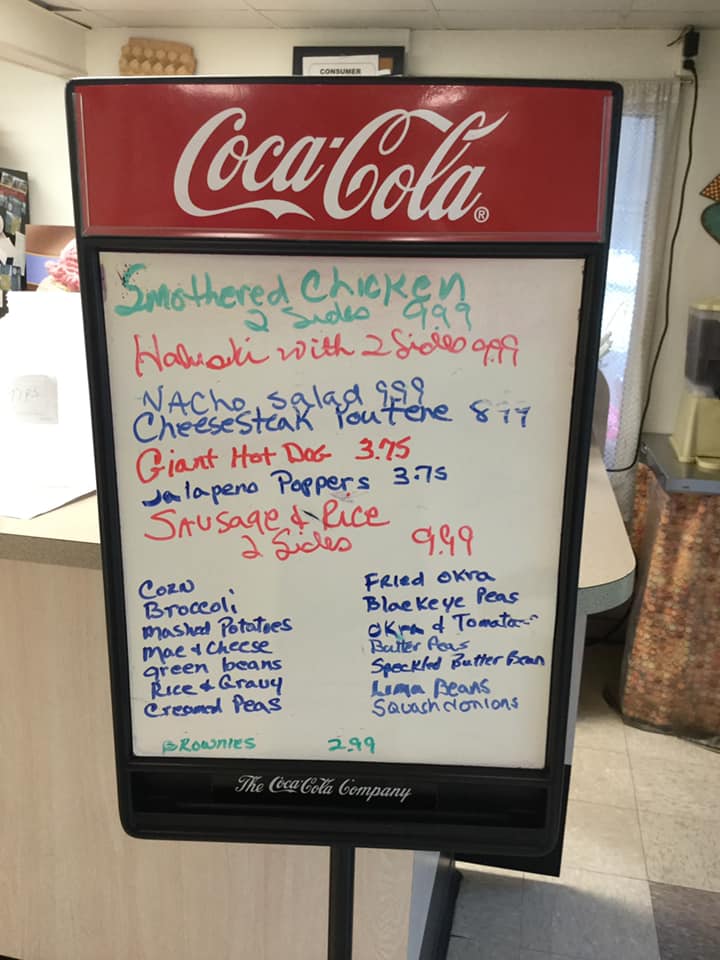 CONSUMER
Coca-Cola®
Smothered Chicken
2 Sides 9.99
Haluski with 2 Sides 9.99
NACho salad 9.99
Cheesesteak Poutene 8.99
Giant Hot Dog 3.75
Jalapeno Poppers 3.75
Sausage & Rice
2 Sides 9.99
Corn
Broccoli
Mashed Potatoes
Mac & Cheese
green beans
Rice & Gravy
Creamed Peas
Fried Okra
Blackeye Peas
Okra & Tomato
Butter Peas
Speckled Butter Bean
Lima Beans
Squash & onions
Brownies 2.99
The Coca-Cola Company